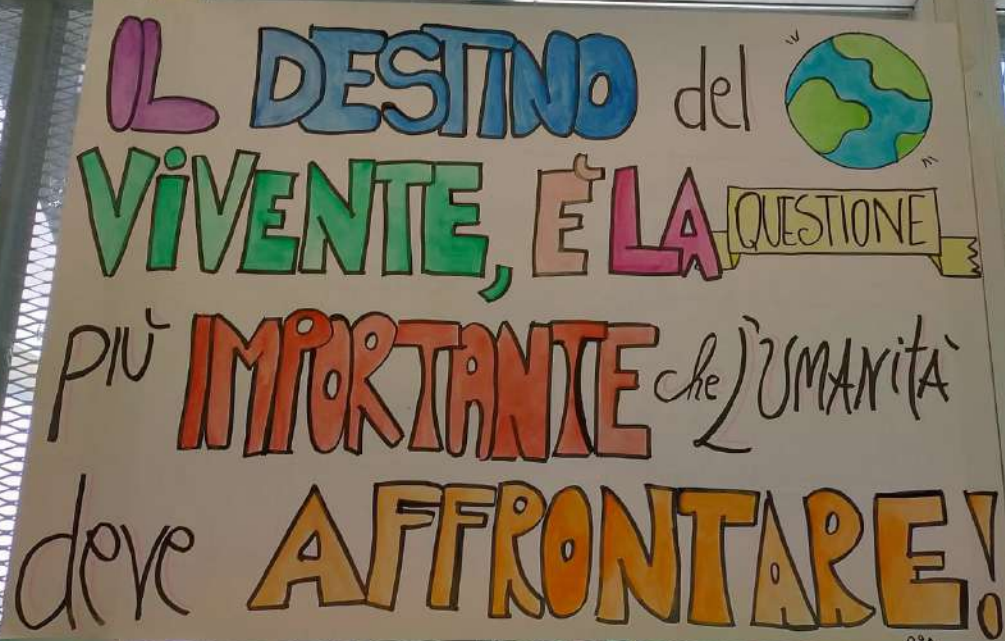 IL DESTINO del
ViVENTE, È LA QUESTIONE
PIÙ IMPORTANTE che L'UMANitÀ
deve AFFRONTARE!